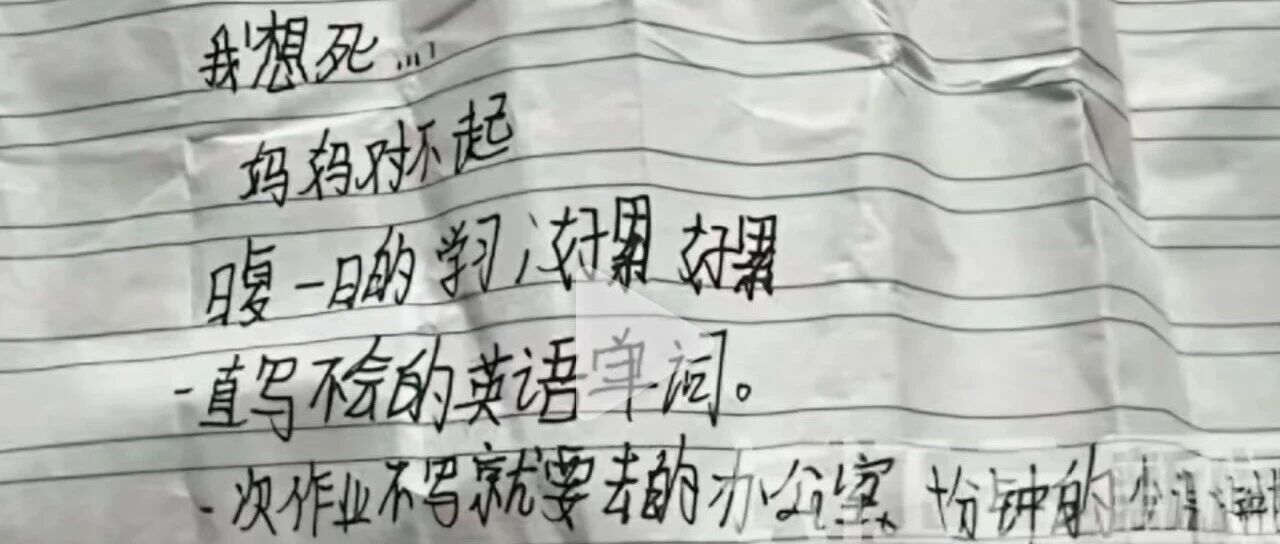 我想死...
妈妈对不起
日复一日的学习,好累 好累
一直写不会的英语单词。
一次作业不写就要去的办公室 十份钟的